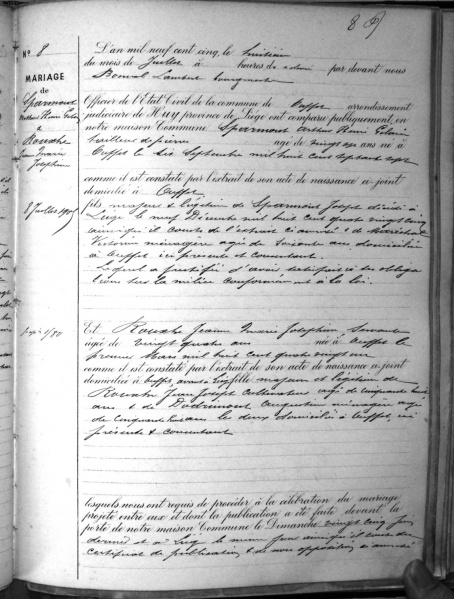 8
N° 8
MARIAGE
de
Sparmont
&
Rouxhe
Jeanne Marie
Joséphine
8 Juillet 1905
L'an mil neuf cent cinq, le huitième
du mois de Juillet à heures du par devant nous
Bonval Lambert bourgmestre
Officier de l'Etat Civil de la commune de Ouffet arrondissement
judiciaire de Huy province de Liège ont comparu publiquement, en
notre maison Commune Sparmont Arthur Remi
tailleur de pierres âgé de vingt sept ans né à
Ouffet le six Septembre mil huit cent septante sept
comme il est constaté par l'extrait de son acte de naissance ci joint
domicilié à Ouffet
fils majeur & légitime de Sparmont Joseph décédé à
Liège le neuf Décembre mil huit cent quatre vingt cinq
ainsi que il conste de l'extrait ci annexé & de Maréchal
Victorine ménagère âgée de soixante ans domiciliée
à Ouffet ici présente et consentant.
Lequel a justifié d'avoir satisfait à ses obliga
tions sur la milice conformément à la loi.
Et Rouxhe Jeanne Marie Joséphine, servante
âgée de vingt quatre ans née à Ouffet le
premier Mars mil huit cent quatre vingt un
comme il est constaté par l'extrait de son acte de naissance ci joint
domiciliée à Ouffet, avant à Liège fille majeure et légitime de
Rouxhe Jean Joseph cultivateur âgé de cinquante huit
ans & de Augustine ménagère âgée
de cinquante ans les deux domiciliés à Ouffet, ici
présents & consentant
lesquels nous ont requis de procéder à la célébration du mariage
projeté entre eux et dont la publication a été faite devant la
porte de notre maison Commune le Dimanche vingt cinq Juin
dernier et à Liège le même jour ainsi qu'il conste du
certificat de publication & de non opposition ci annexé